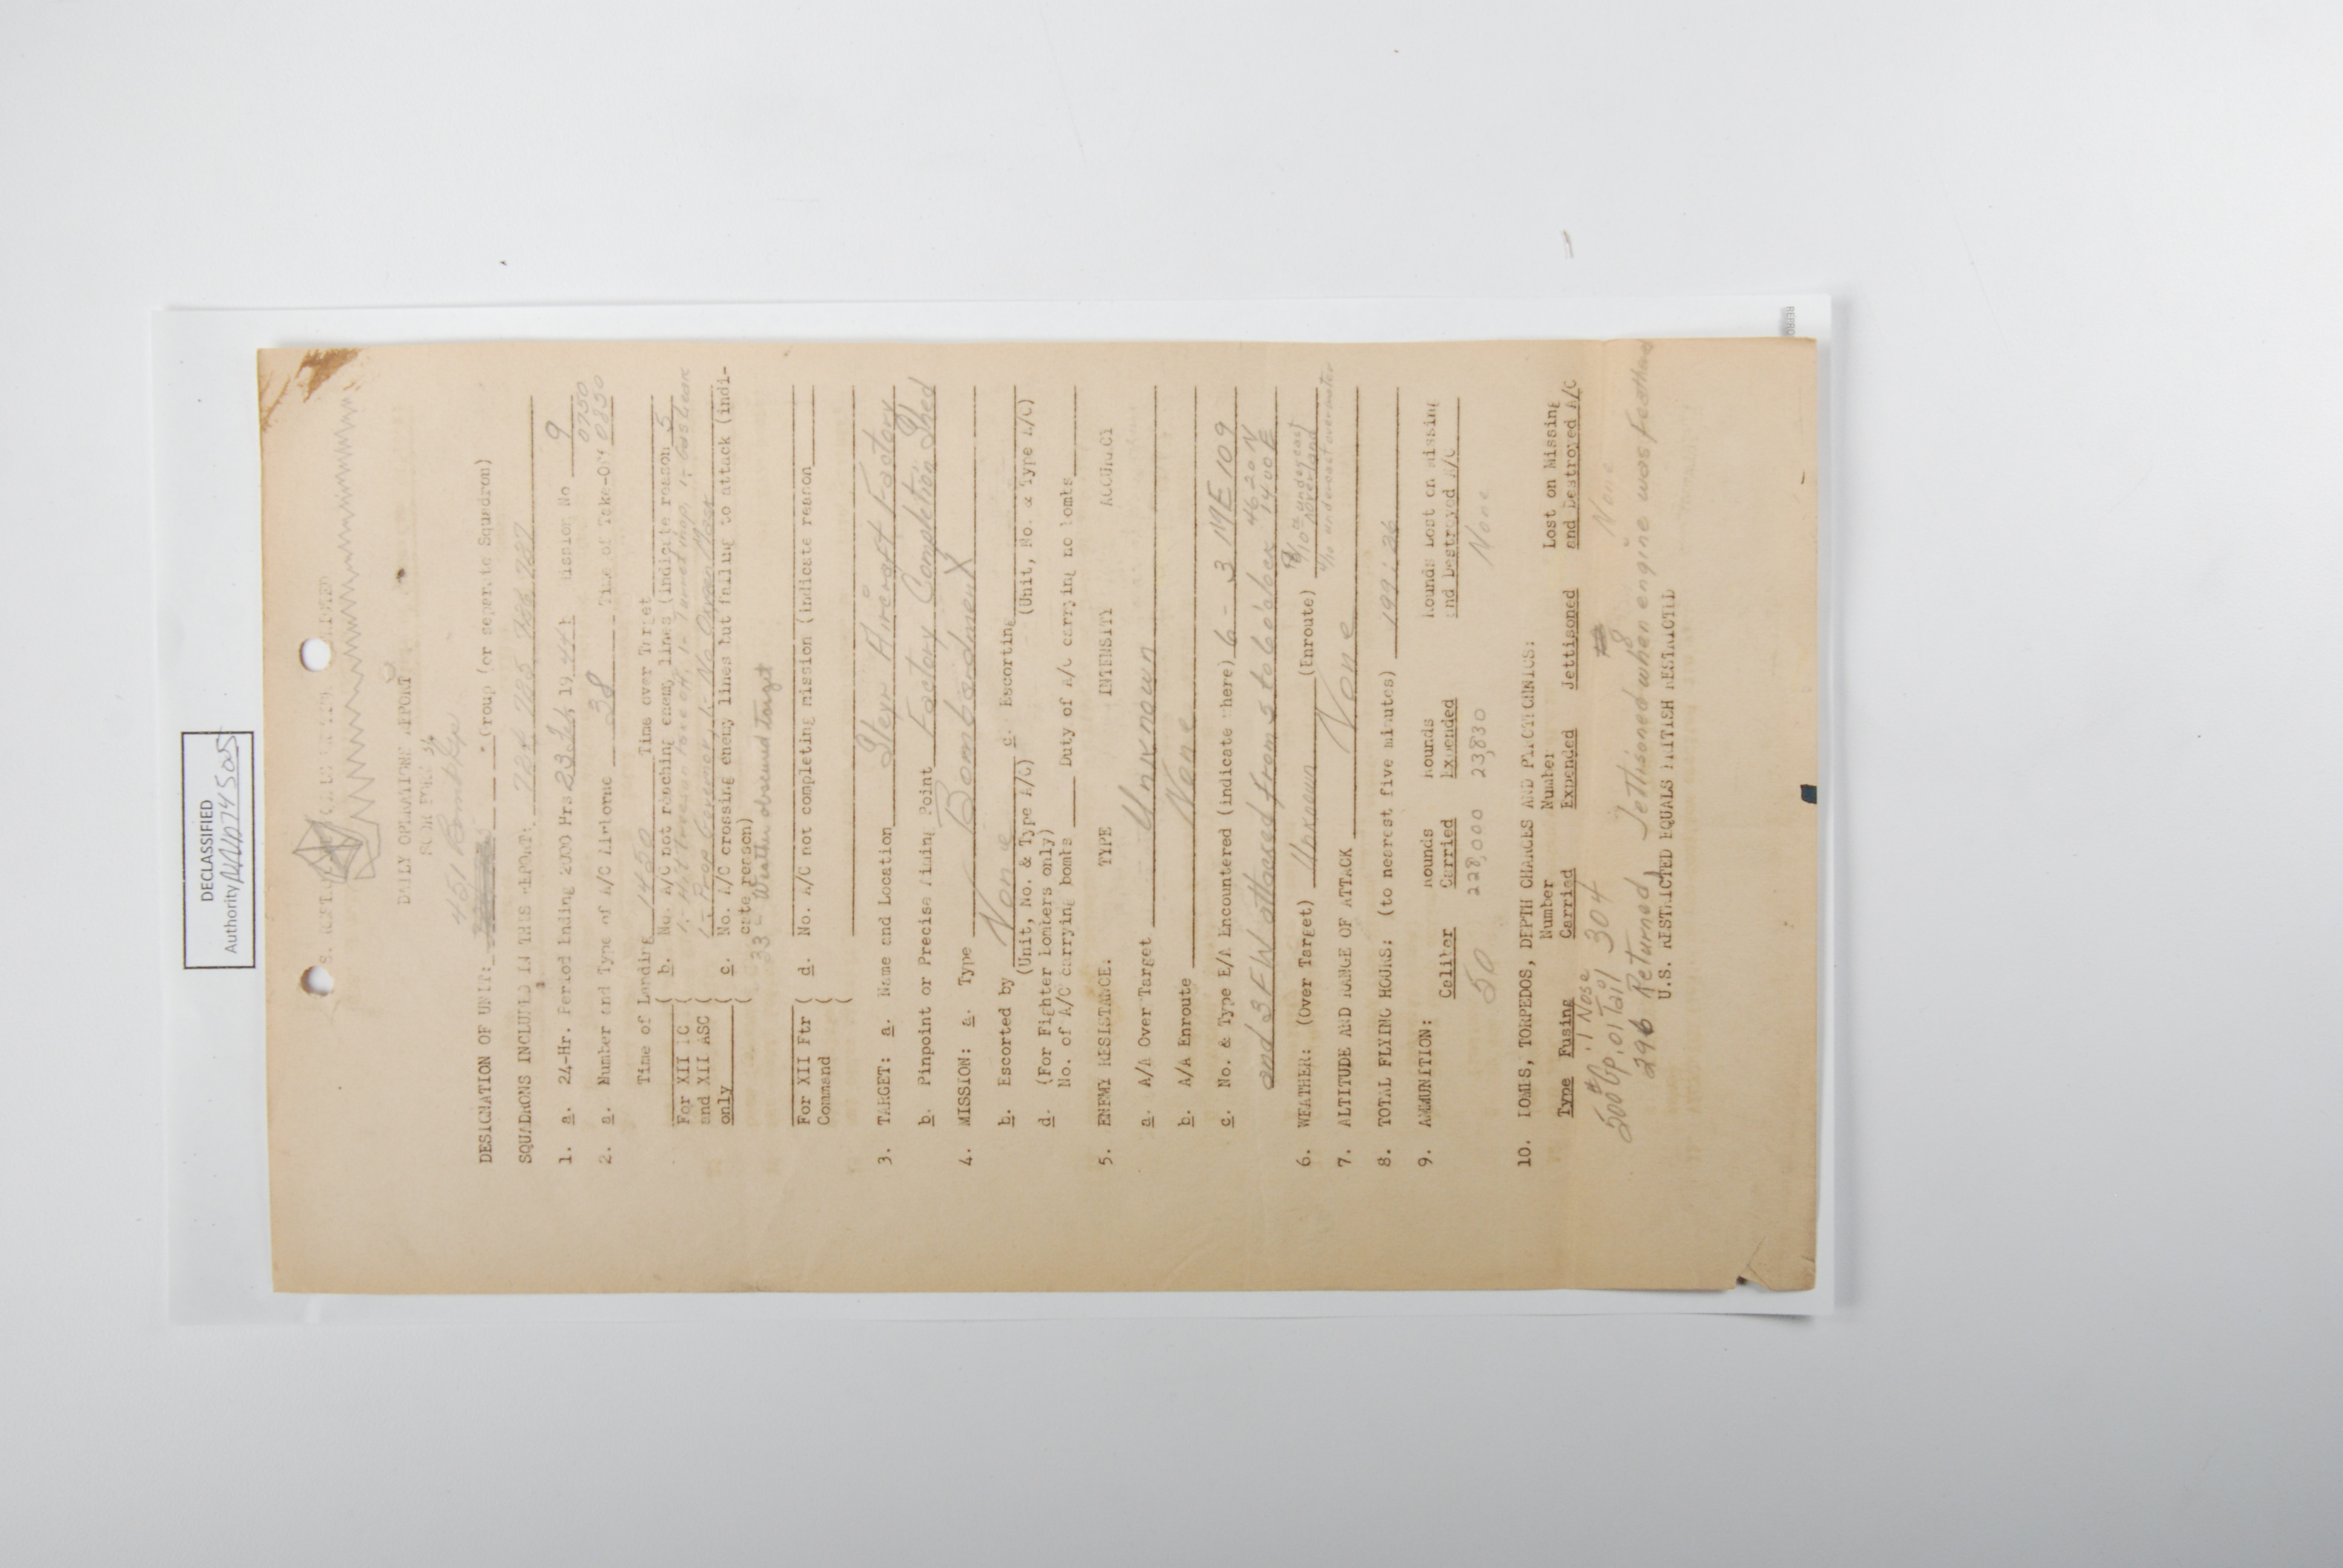 DECLASSIFIED
Authority NND745005
DAILY OPERATIONS REPORT
FORM 34
451 Bomb Gp
DESIGNATION OF UNIT: (Group (or separate Squadron)
SQUADRONS INCLUDED IN THIS REPORT: 724 725 726 727
1. a. 24-Hr. Period Ending 2000 Hrs 23 Feb 1944 Mission No 9
0750
2. a. Number and Type of A/C Airborne 38 Time of Take-Off 0830
Time of Landing 1450 Time over Target
For XII BC ( b. No. A/C not reaching enemy lines (indicate reason 5
and XII ASC (
only ( c. No. A/C crossing enemy lines but failing to attack (indi-
cate reason)
33 - Weather obscured target
For XII Ftr ( d. No. A/C not completing mission (indicate reason
Command (
3. TARGET: a. Name and Location Steyr Aircraft Factory
b. Pinpoint or Precise Aiming Point Factory Completion Shed
4. MISSION: a. Type Bombardment X
b. Escorted by None c. Escorting
(Unit, No. & Type A/C) (Unit, No. & Type A/C)
d. (For Fighter Bombers only)
No. of A/C carrying bombs Duty of A/C carrying no bombs
5. ENEMY RESISTANCE: TYPE INTENSITY ACCURACY
a. A/A Over Target Unknown
b. A/A Enroute None
c. No. & Type E/A Encountered (indicate where) 6 - 3 ME 109
and 3 FW attacked from 5 to 6 o'clock 4620N 1400E
6. WEATHER: (Over Target) Unknown (Enroute) 8/10 undercast over land
undercast over water
7. ALTITUDE AND RANGE OF ATTACK None
8. TOTAL FLYING HOURS: (to nearest five minutes)
9. AMMUNITION: Caliber Rounds Carried Rounds Expended Rounds Lost on Missing and Destroyed A/C
50 228,000 23,830 None
10. BOMBS, TORPEDOS, DEPTH CHARGES AND PYROTECHNICS:
Type Fusing Number Carried Number Expended Jettisoned Lost on Missing and Destroyed A/C
500# Gp .1 Nose .01 Tail 304 8 None
296 Returned, Jettisoned when engine was feathered
U.S. RESTRICTED EQUALS BRITISH RESTRICTED